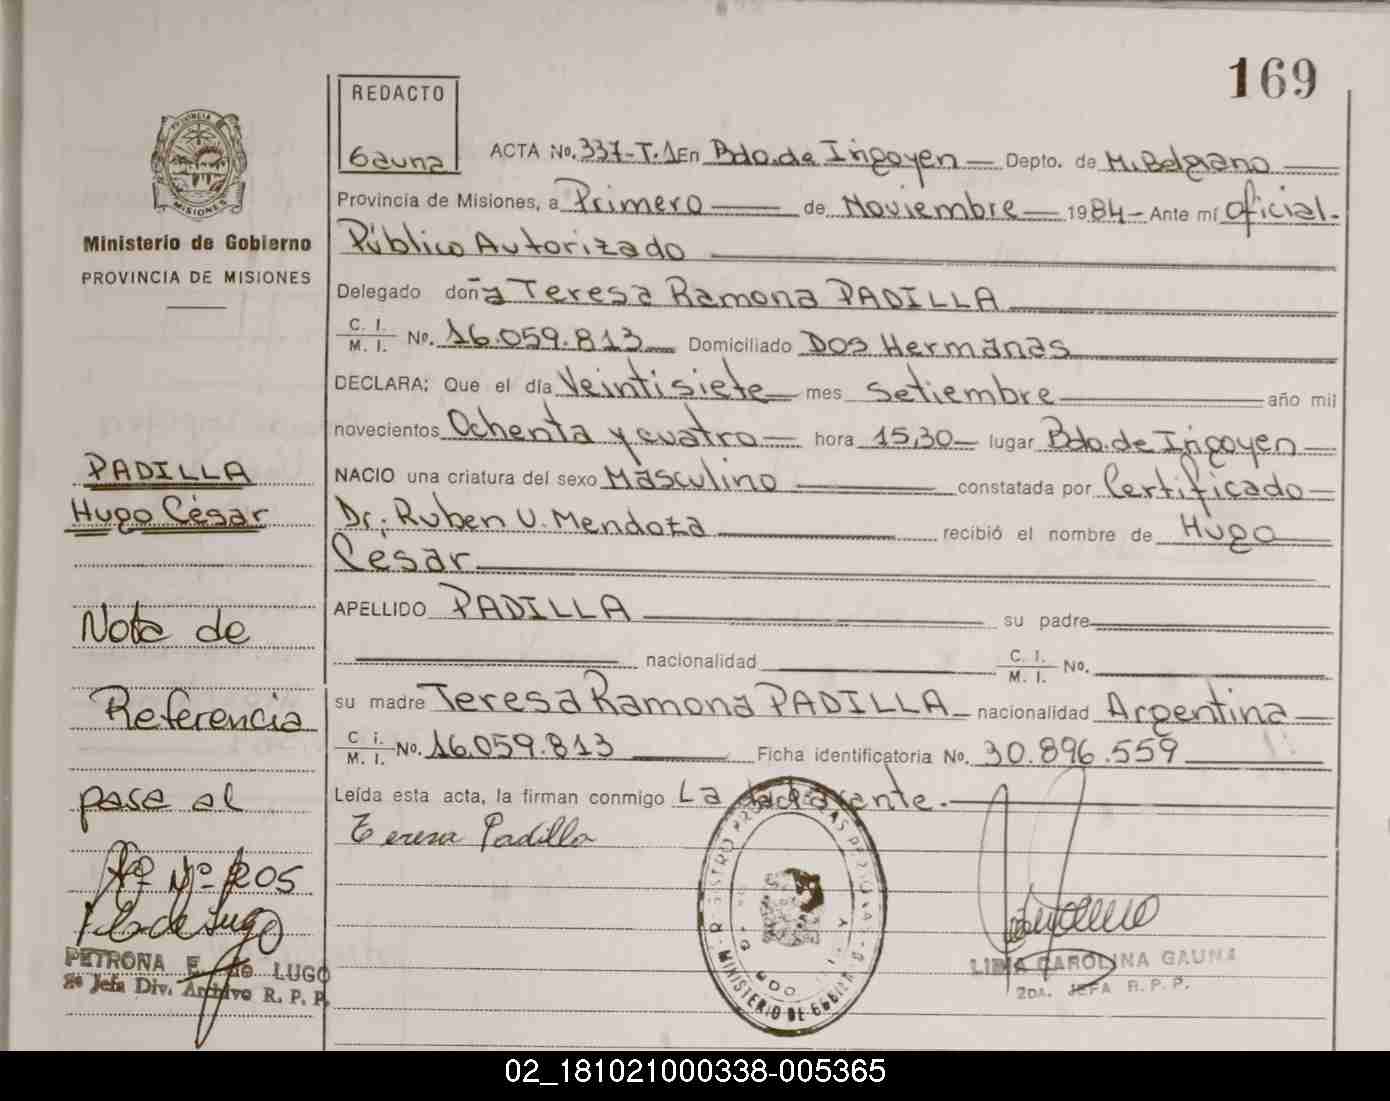 169
REDACTO
Gauna
PROVINCIA
MISIONES
Ministerio de Gobierno
PROVINCIA DE MISIONES
ACTA No. 337-T.1 En Bdo. de Irigoyen Depto. de M. Belgrano
Provincia de Misiones, a Primero de Noviembre 1984 - Ante mí Oficial
Público Autorizado
Delegado doña Teresa Ramona PADILLA
C. I. / M. I. No. 16.059.813 Domiciliado Dos Hermanas
DECLARA: Que el día Veintisiete mes Setiembre año mil
novecientos Ochenta y cuatro hora 15,30 lugar Bdo. de Irigoyen
NACIO una criatura del sexo Masculino constatada por Certificado
Dr. Ruben U. Mendoza recibió el nombre de Hugo
César
APELLIDO PADILLA su padre
nacionalidad C. I. / M. I. No.
su madre Teresa Ramona PADILLA nacionalidad Argentina
C. i. / M. I. No. 16.059.813 Ficha identificatoria No. 30.896.559
Leída esta acta, la firman conmigo La declarante.
Teresa Padilla
PADILLA
Hugo César
Nota de
Referencia
pasa al
Nº 205
PETRONA E. de LUGO
2ª Jefa Div. Archivo R. P. P.
MINISTERIO DE GOBIERNO
LIDIA CAROLINA GAUNA
2DA. JEFA R. P. P.
02_181021000338-005365